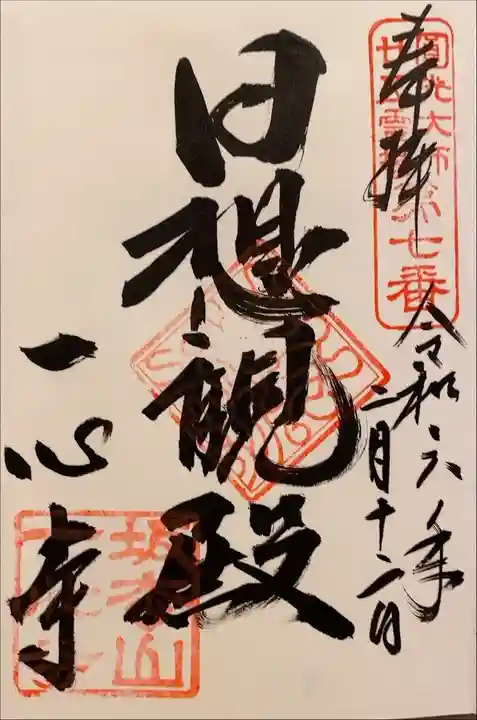 奉拝
圓光大師
廿五霊場第七番
令和六年
二月十二日
日想観殿
一心寺
坂松山